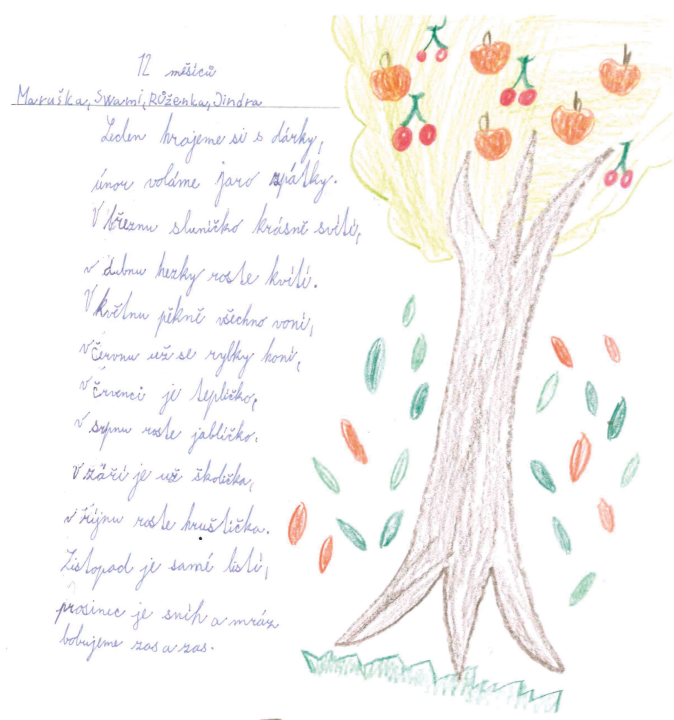 12 měsíců
Maruška, Swami, Růženka, Jindra
Leden hrajeme si s dárky,
únor voláme jaro zpátky.
V březnu sluníčko krásně svítí,
v dubnu hezky roste kvítí.
V květnu pěkně všechno voní,
v červnu už se rybky honí,
v červenci je teplíčko,
v srpnu roste jablíčko.
V září je už školička,
v říjnu roste hruštička.
Listopad je samé listí,
prosinec je sníh a mráz
bobujeme zas a zas.